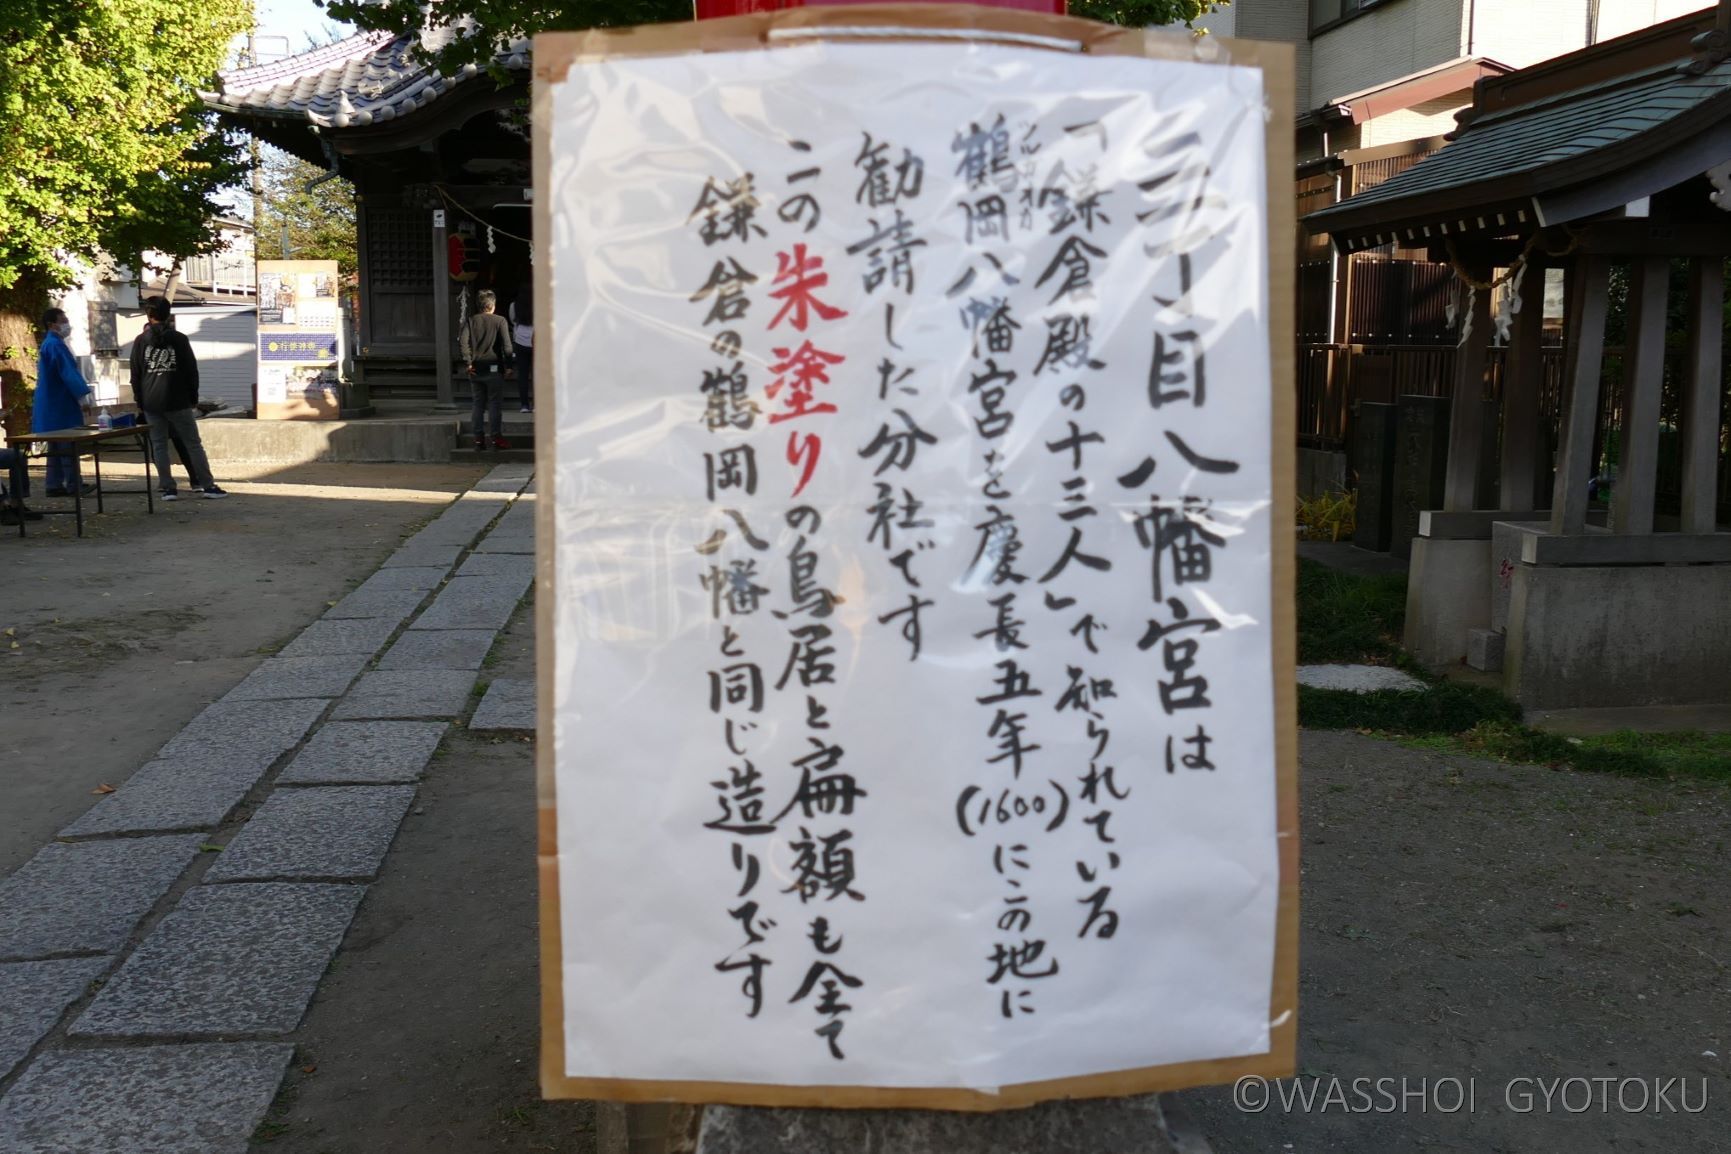 三丁目八幡宮は
「鎌倉殿の十三人」で知られている
ツルガオカ
鶴岡八幡宮を慶長五年(1600)にこの地に
勧請した分社です
この朱塗りの鳥居と扁額も全て
鎌倉の鶴岡八幡と同じ造りです
©WASSHOI GYOTOKU